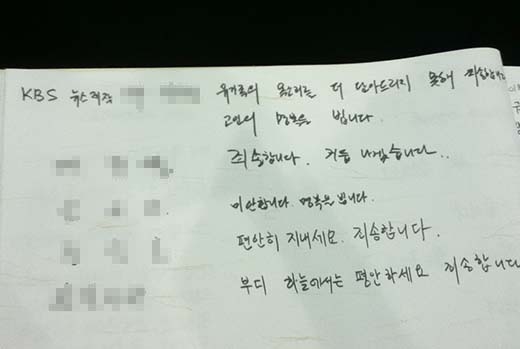 KBS 뉴스 유가족의 목소리를 더 담아드리지 못해 죄송합니다
고인의 명복을 빕니다.
죄송합니다. 거듭나겠습니다..
미안합니다. 명복을 빕니다.
편안히 지내세요. 죄송합니다.
부디 하늘에서는 평안하세요 죄송합니다